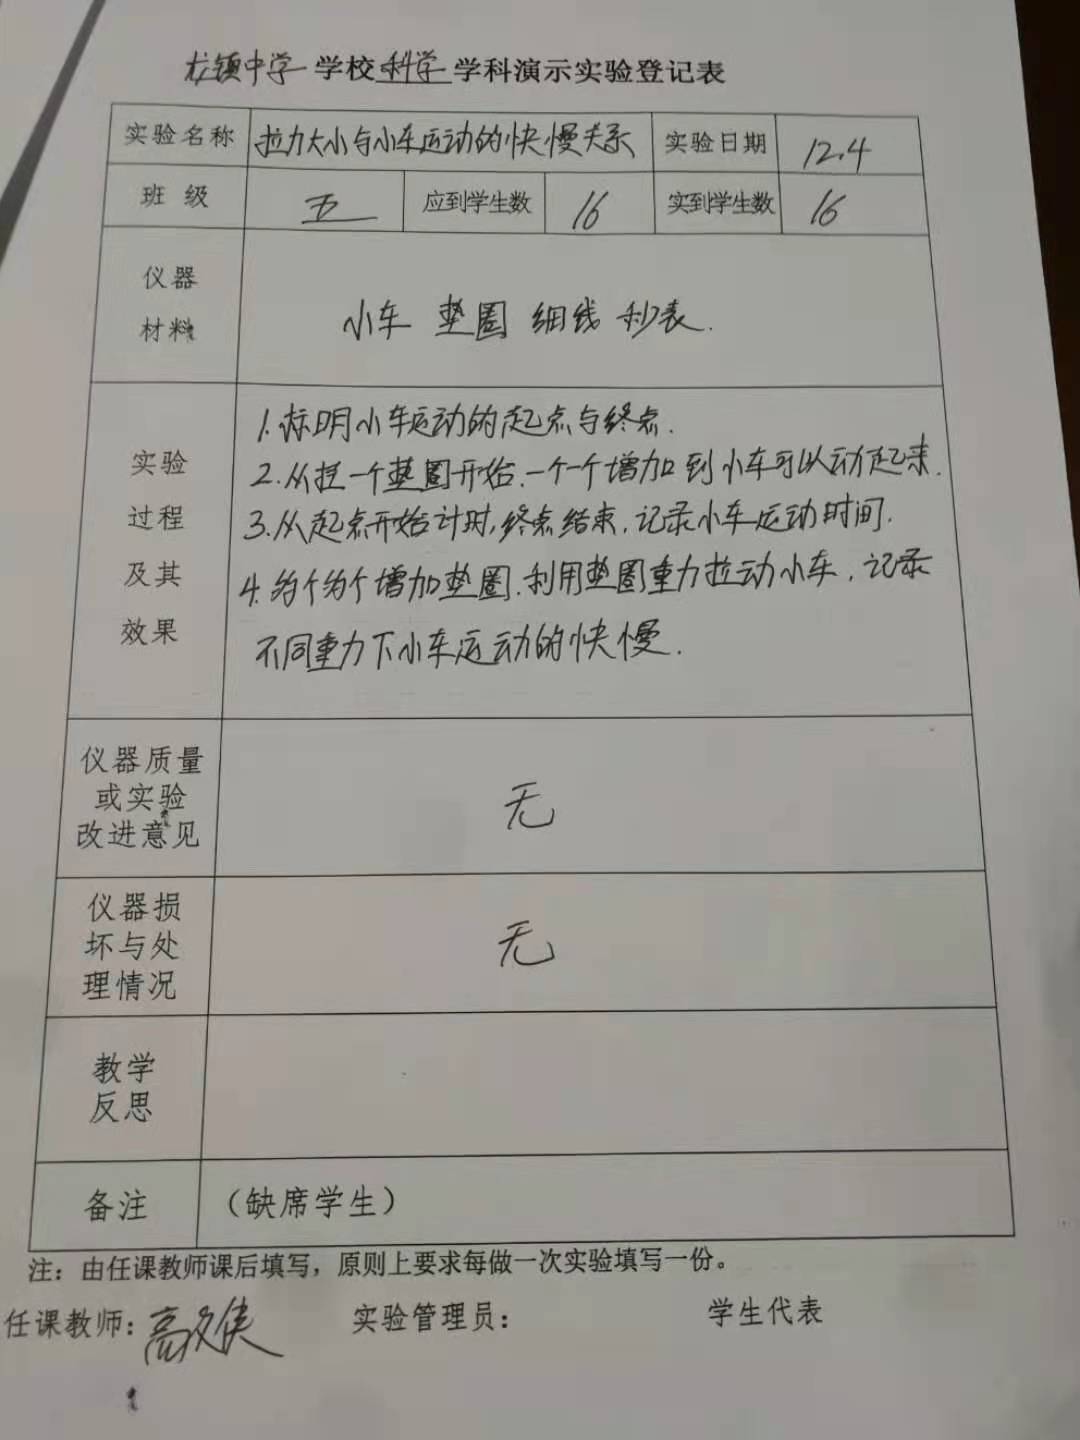 龙镇中学 学校 科学 学科演示实验登记表
实验名称 拉力大小与小车运动的快慢关系 实验日期 12.4
班 级 五 应到学生数 16 实到学生数 16
仪器
材料
小车 垫圈 细线 秒表.
实验
过程
及其
效果
1.标明小车运动的起点与终点.
2.从挂一个垫圈开始.一个一个增加到小车可以动起来.
3.从起点开始计时,终点结束,记录小车运动时间.
4.约个约个增加垫圈.利用垫圈重力拉动小车.记录
不同重力下小车运动的快慢.
仪器质量
或实验
改进意见
无
仪器损
坏与处
理情况
无
教学
反思
备注 （缺席学生）
注：由任课教师课后填写，原则上要求每做一次实验填写一份。
任课教师：高 实验管理员： 学生代表